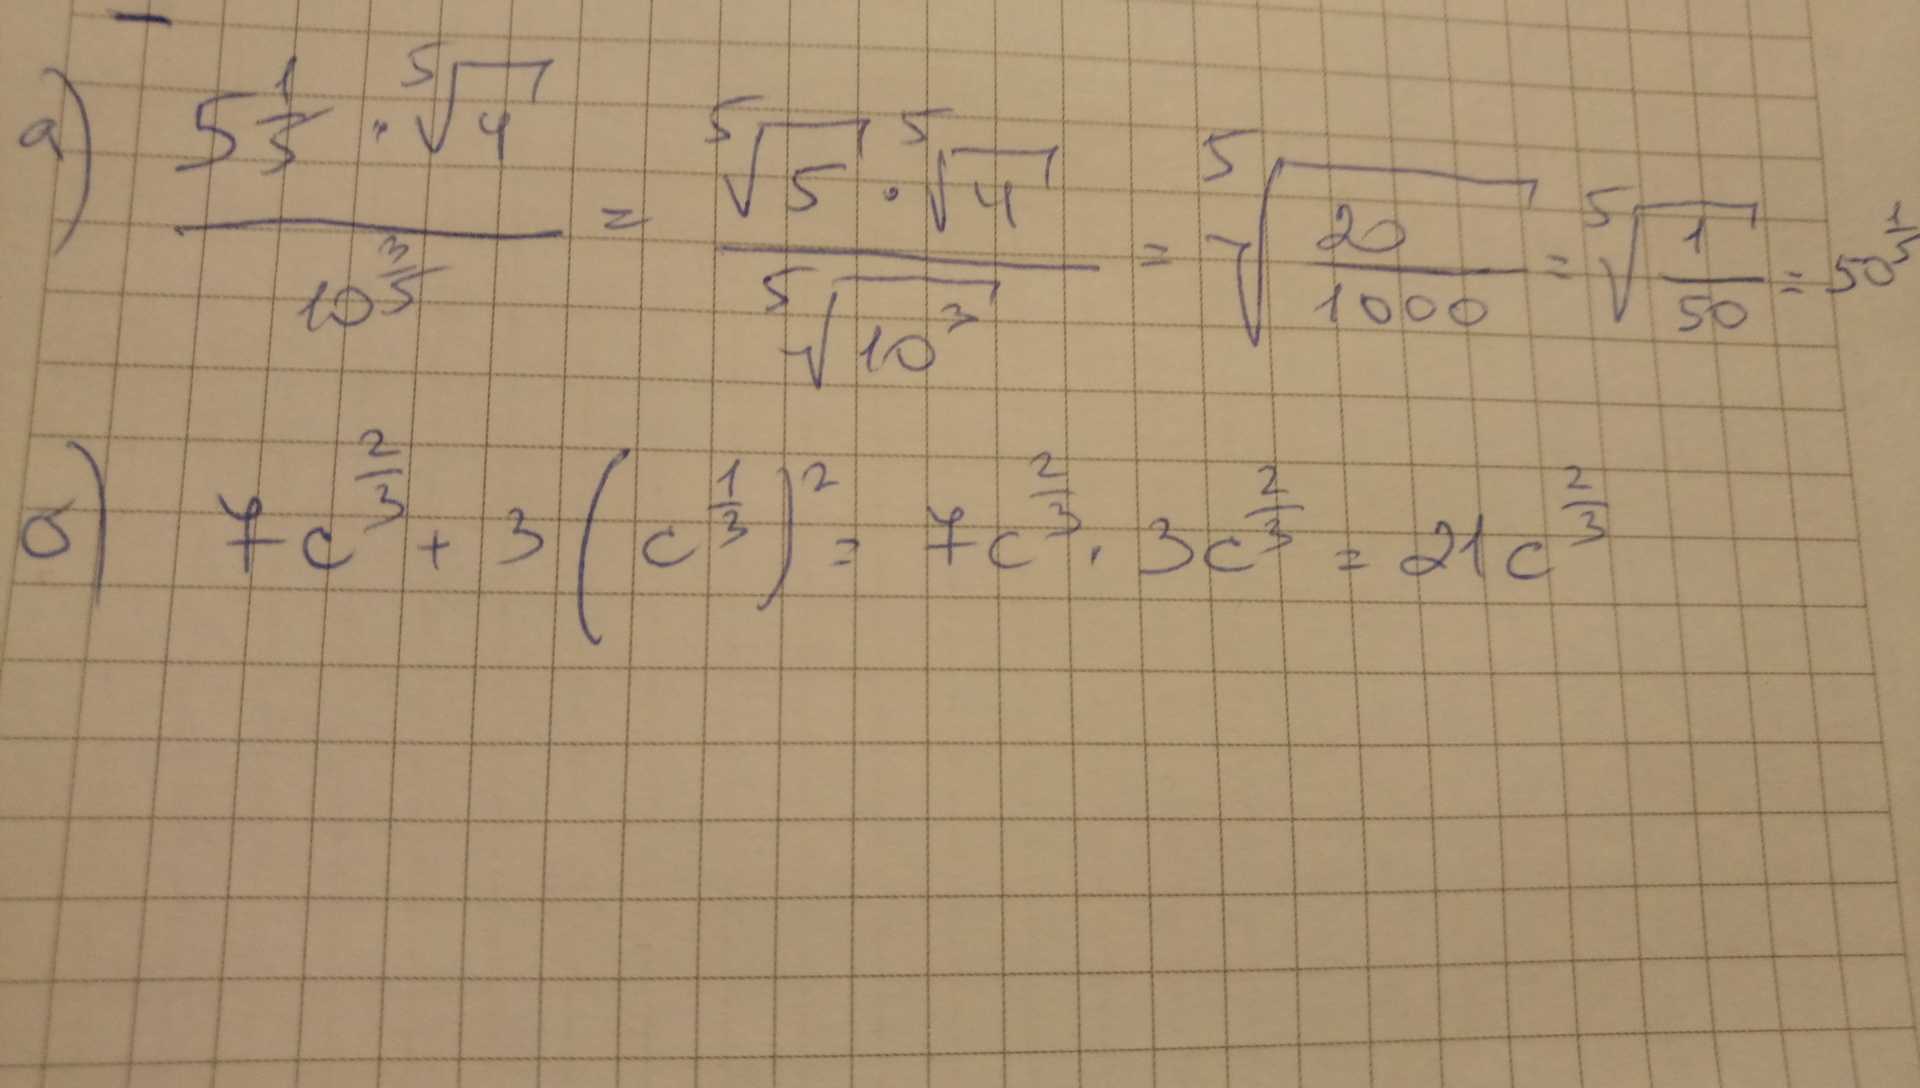 а) (5^(1/5) · ⁵√4) / 10^(3/5) = (⁵√5 · ⁵√4) / ⁵√(10^3) = ⁵√(20/1000) = ⁵√(1/50) = 50^(1/5)
б) 7c^(2/3) + 3(c^(1/3))^2 = 7c^(2/3) · 3c^(2/3) = 21c^(2/3)